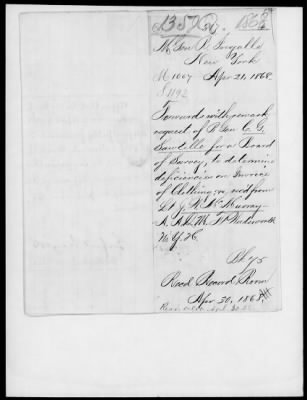 1357 1868
M Gen R. Ingalls
New York
M 1007 Apr 21, 1868.
1192
Forwards with remark
request of B Gen C. G.
Sawtelle for a Board
of Survey, to determine
deficiencies on Invoice
of Clothing &c, recd from
Lt J. W. McMurray
A. A. Q. M. Ft Wadsworth
N. Y. H.
Recd Record Room
Apr 30, 1868,